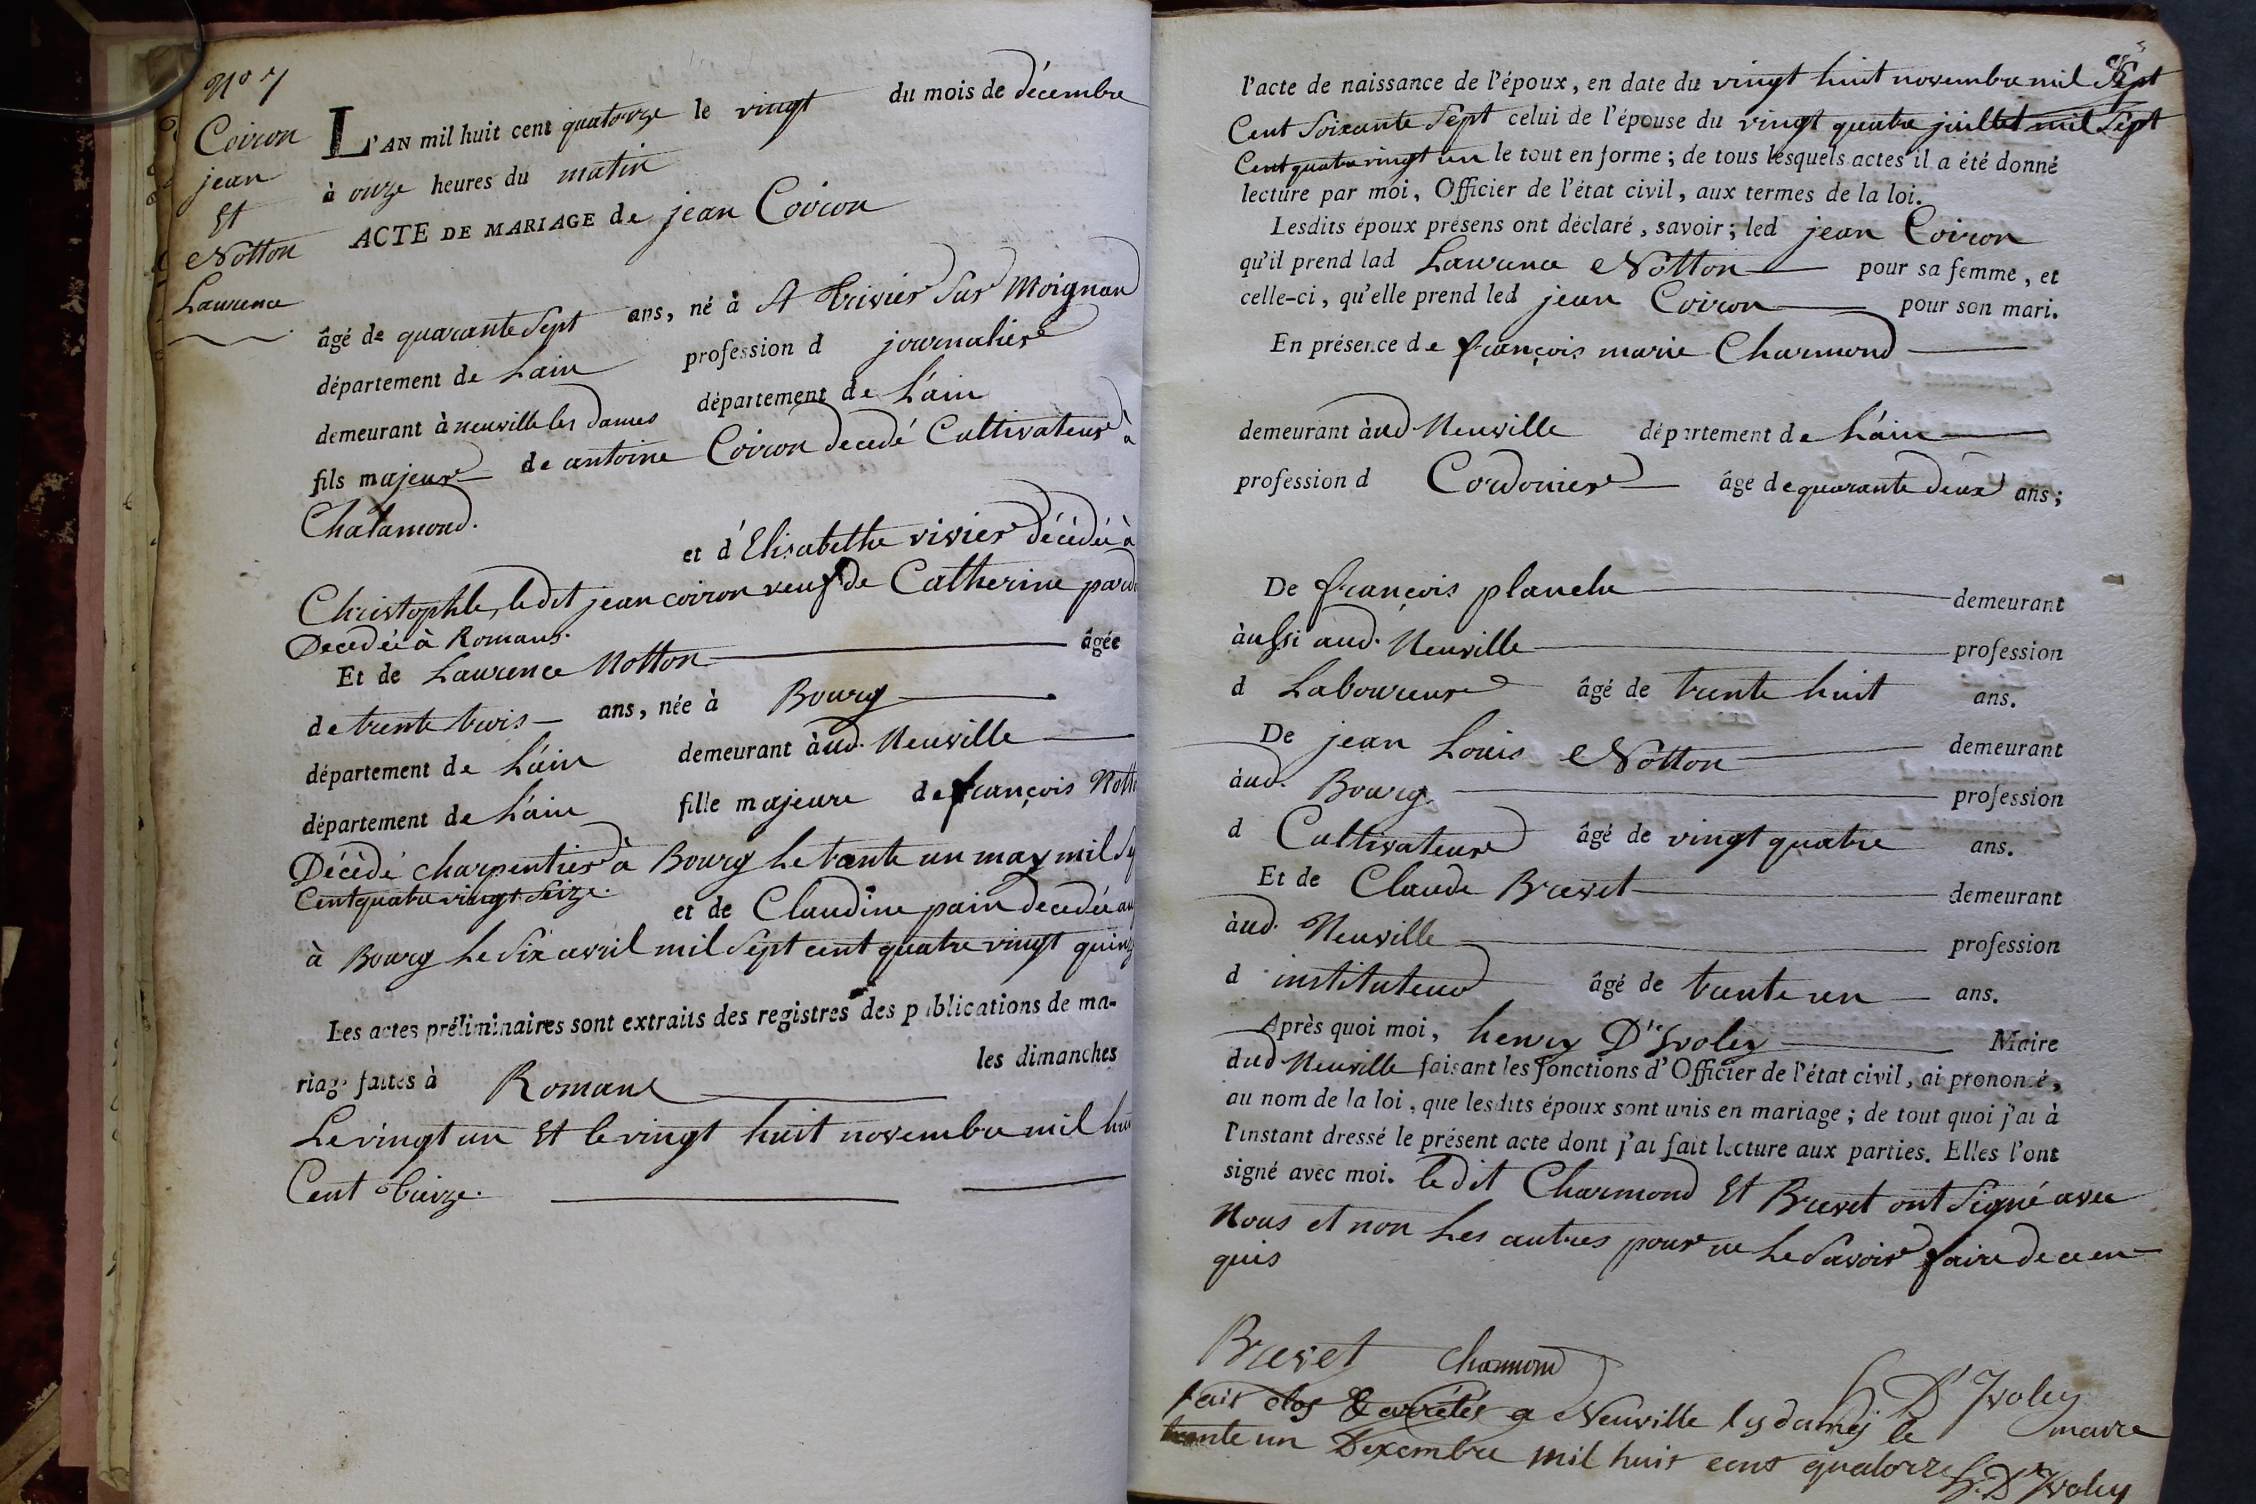 N° 7
Coiron
jean
Et
Notton
Laurence
L'AN mil huit cent quatorze le vingt du mois de décembre
à onze heures du matin
ACTE DE MARIAGE de jean Coiron
âgé de quarante Sept ans, né à St trivier Sur Moignan
département de Lain profession d journalier
demeurant à neuville les dames département de L'ain
fils majeur de antoine Coiron decedé Cultivateur à
Chalamond.
et d'Elisabethe vivier décédée à
Christophle, ledit jean coiron veuf de Catherine
Decedée à Romans.
Et de Laurence Notton âgée
de trente trois ans, née à Bourg
département de L'ain demeurant àud. Neuville
département de L'ain fille majeure de françois
Décédé charpentier à Bourg Le trente un may mil
Cent quatre vingt Seize. et de Claudine pain decedée
à Bourg Le Six avril mil Sept cent quatre vingt
Les actes préliminaires sont extraits des registres des publications de ma-
riage faites à Romans les dimanches
Le vingt un Et le vingt huit novembre mil
Cent treize.
l'acte de naissance de l'époux, en date du vingt huit novembre mil Sept
Cent Soixante Sept celui de l'épouse du vingt quatre juillet mil Sept
Cent quatre vingt un le tout en forme; de tous lesquels actes il a été donné
lecture par moi, Officier de l'état civil, aux termes de la loi.
Lesdits époux présens ont déclaré, savoir; led jean Coiron
qu'il prend lad Laurence Notton pour sa femme, et
celle-ci, qu'elle prend led jean Coiron pour son mari.
En présence de françois marie Charmond
demeurant àud Neuville département de L'ain
profession d Cordonier âgé de quarante deux ans;
De françois planche demeurant
àussi aud. Neuville profession
d Laboureur âgé de trente huit ans.
De jean Louis Notton demeurant
àud. Bourg profession
d Cultivateur âgé de vingt quatre ans.
Et de Claude Brevet demeurant
àud. Neuville profession
d instituteur âgé de trente un ans.
Après quoi moi, henry D'Ivoley Maire
dud Neuville faisant les fonctions d'Officier de l'état civil, ai prononcé,
au nom de la loi, que lesdits époux sont unis en mariage; de tout quoi j'ai à
l'instant dressé le présent acte dont j'ai fait lecture aux parties. Elles l'ont
signé avec moi. ledit Charmond Et Brevet ont Signé avec
Nous et non Les autres pour ne Le Savoir faire de ce en
quis
Brevet Charmond
H D'Ivoley
maire
fait clos & arrêtés a Neuville les dames le
trente un Decembre mil huit cent quatorze H. D'Ivoley